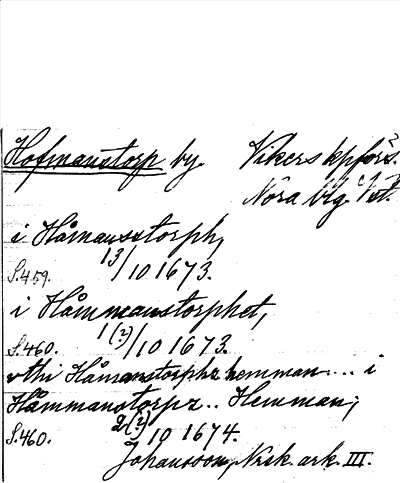 Hofmanstorp by. Vikers kpförs.
Nora blg. Vst.
i Håmansstorph,
S.459. 13/10 1673.
i Håmmanstorphet,
S.460. 1(?)/10 1673.
uthi Håmanstorphz hemman .... i
Håmmanstorpz .. Hemman;
S.460. 2(?)/10 1674.
Johansson, Nrsk. ark. III.